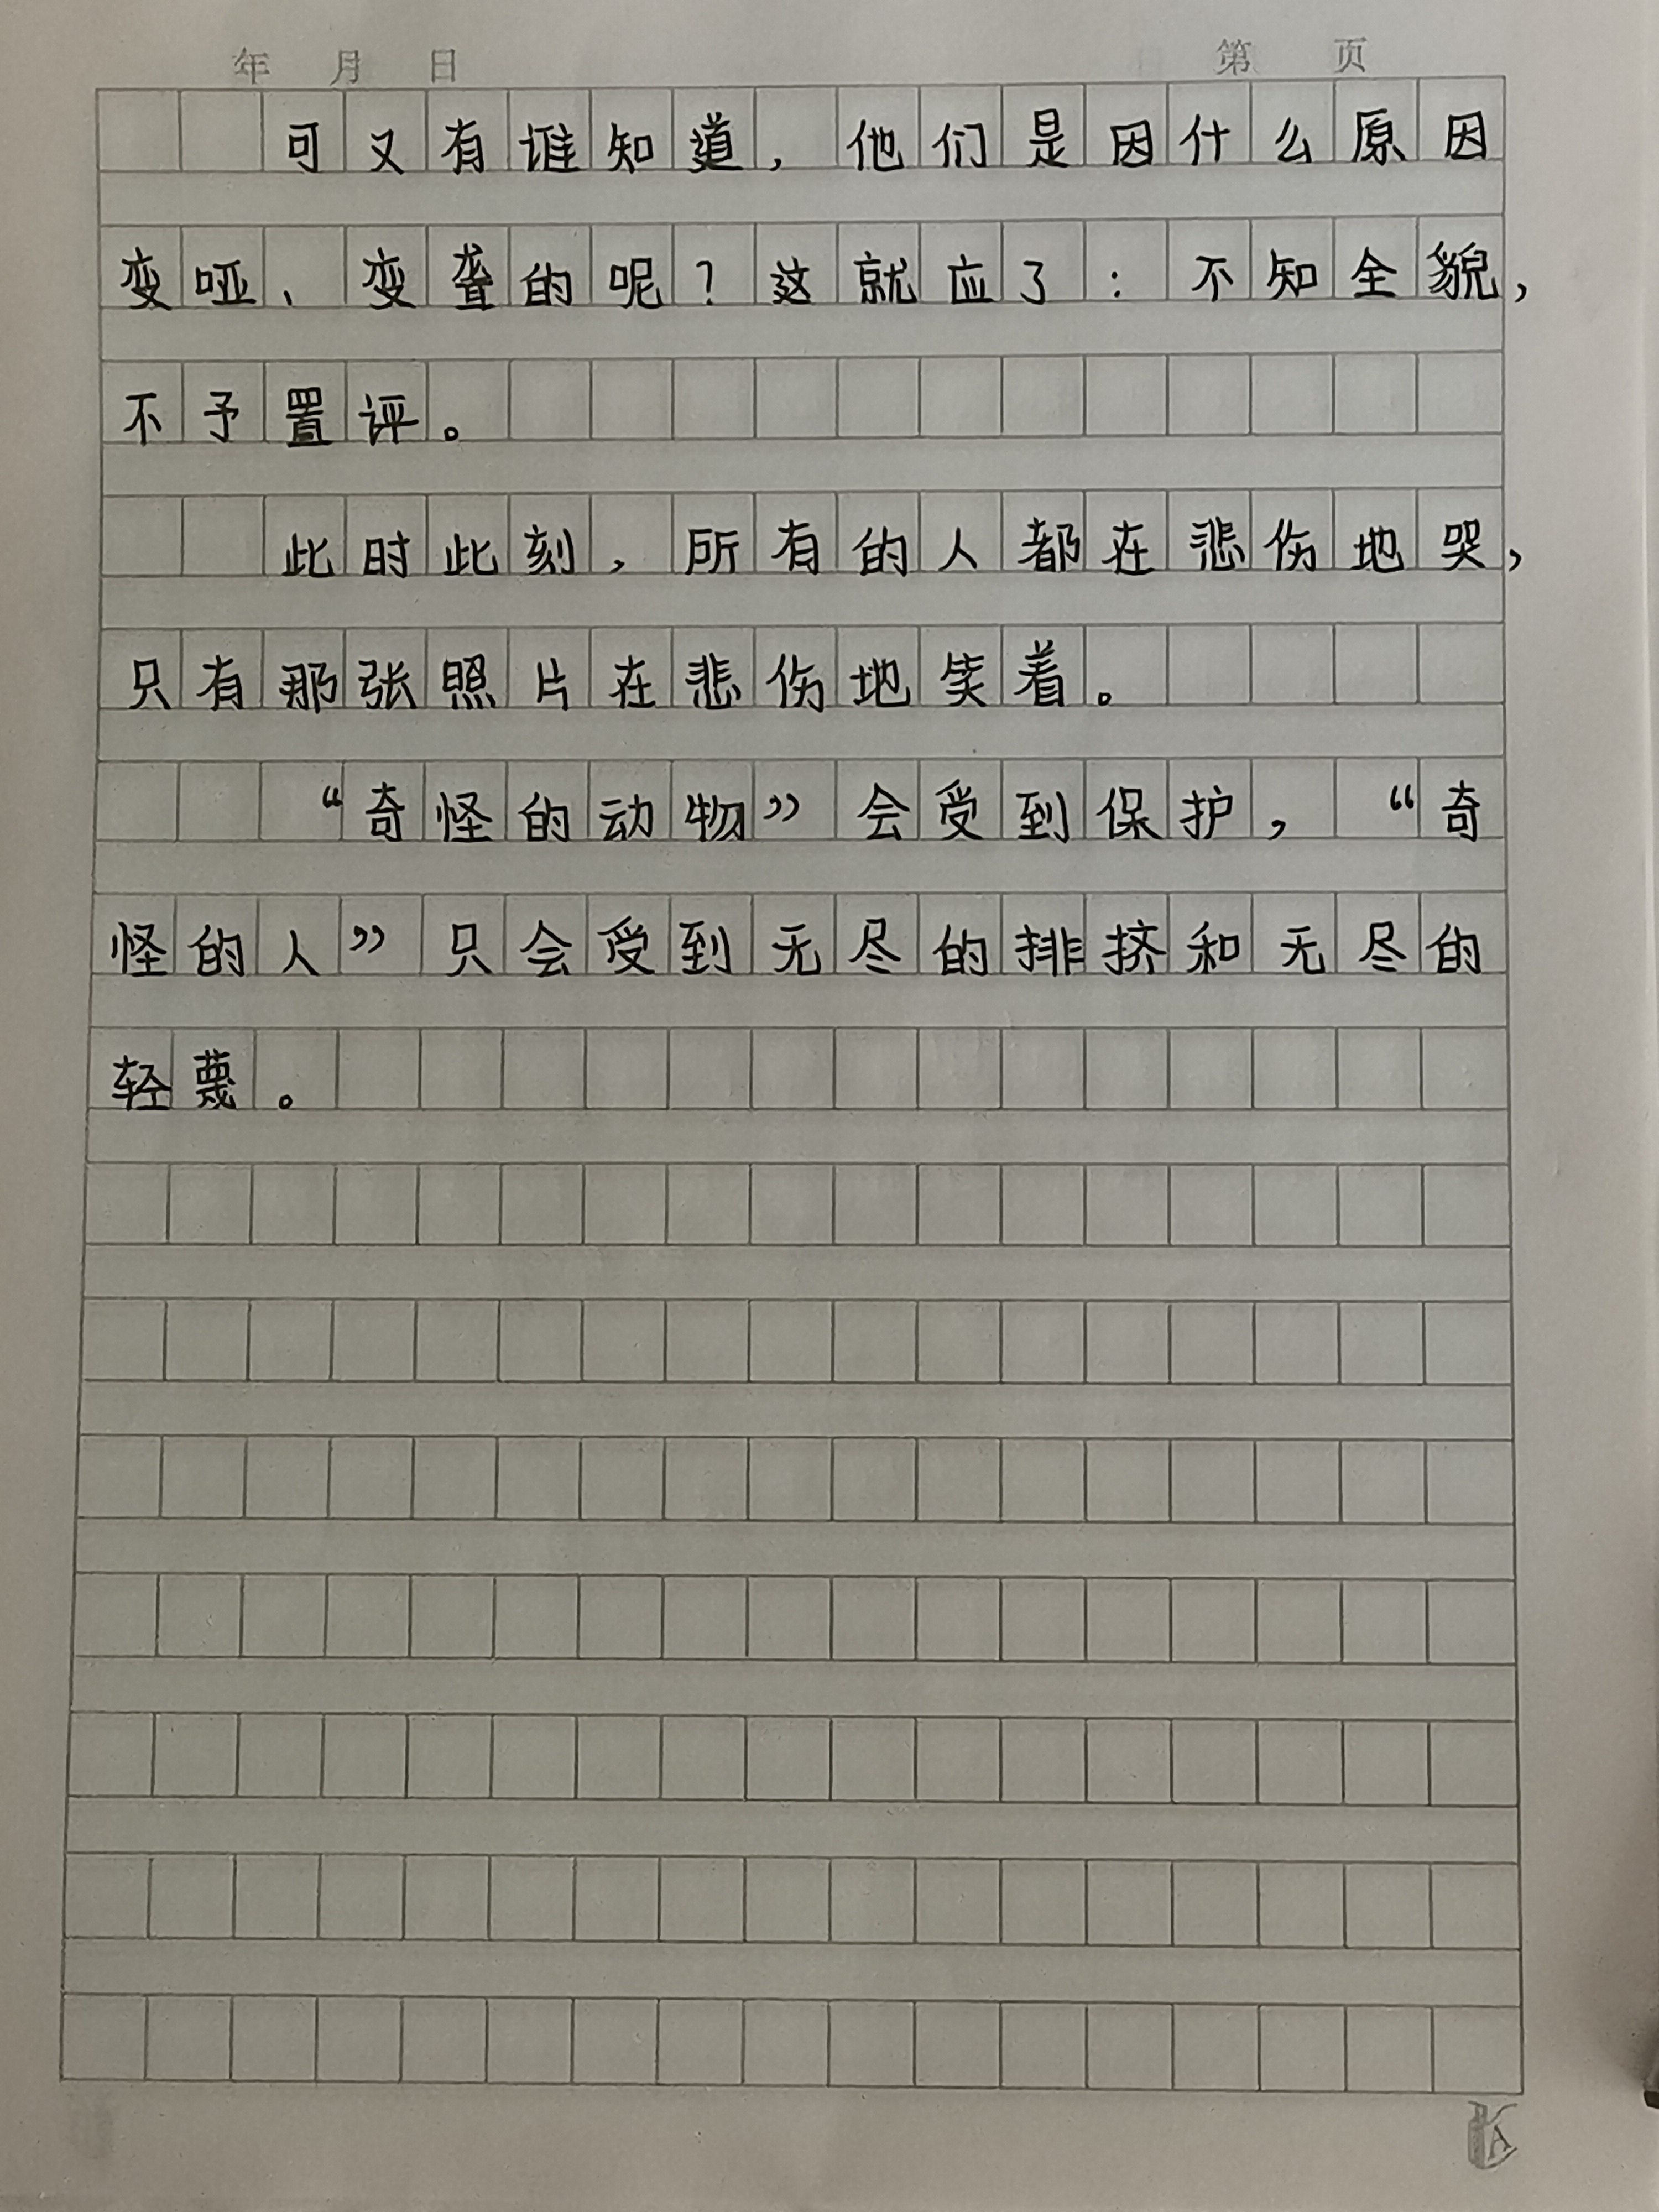 年 月 日 第 页
可又有谁知道，他们是因什么原因
变哑、变聋的呢？这就应了：不知全貌，
不予置评。
此时此刻，所有的人都在悲伤地哭，
只有那张照片在悲伤地笑着。
“奇怪的动物”会受到保护，“奇
怪的人”只会受到无尽的排挤和无尽的
轻蔑。